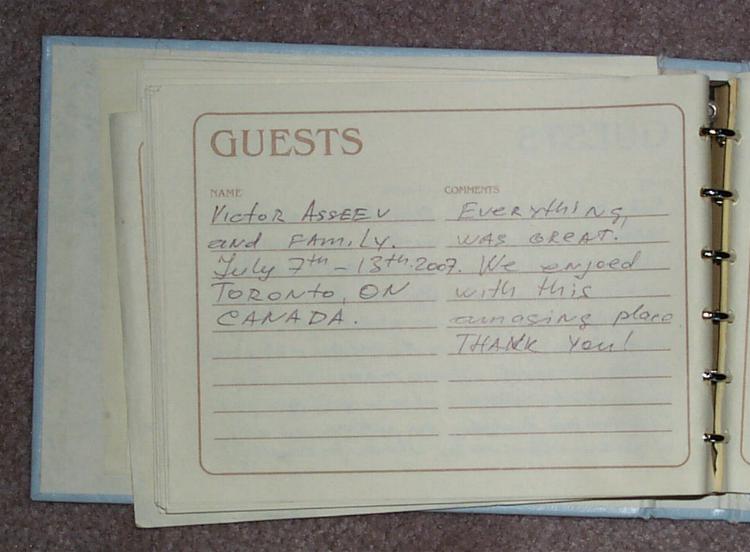 GUESTS
NAME COMMENTS
Victor Asseev Everything
and Family. was great.
July 7th - 13th.2007. We enjoed
Toronto, ON with this
CANADA. amasing place
THANK you!